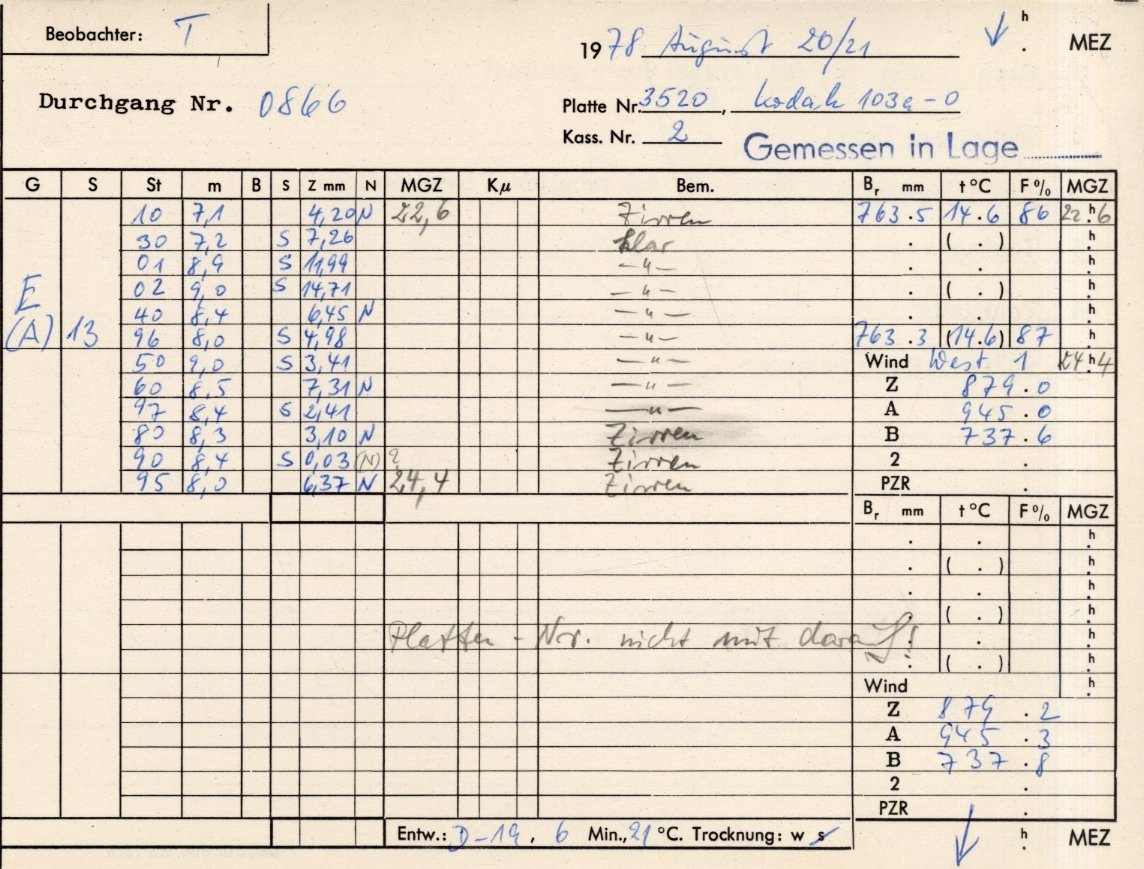 Beobachter: T
1978 August 20/21 h . MEZ
Durchgang Nr. 0866
Platte Nr. 3520, Kodak 103a-O
Kass. Nr. 2
Gemessen in Lage
G S St m B S Z mm N MGZ Kμ Bem. Br mm t °C F % MGZ
10 7,1 4,20 N 22,6 Zirren 763.5 14.6 86 22.h6
30 7,2 S 7,26 klar . ( . ) h.
01 8,9 S 11,99 —"— . . h.
02 9,0 S 14,71 —"— . ( . ) h.
E 40 8,4 6,45 N —"— . . h.
(A) 13 96 8,0 S 4,98 —"— 763.3 (14.6) 87 h.
50 9,0 S 3,41 —"— Wind West 1 24h4
60 8,5 7,31 N —"— Z 879.0
97 8,4 S 2,41 —"— A 945.0
80 8,3 3,10 N Zirren B 737.6
90 8,4 S 0,03 (N) ? Zirren 2 .
95 8,0 6,37 N 24,4 Zirren PZR .
Br mm t °C F % MGZ
. . h.
. ( . ) h.
. . h.
. ( . ) h.
Platten-Nr. nicht mit darauf! . . h.
. ( . ) h.
Wind h.
Z 879.2
A 945.3
B 737.8
2 .
PZR .
Entw.: D-19, 6 Min., 21 °C. Trocknung: w s h . MEZ